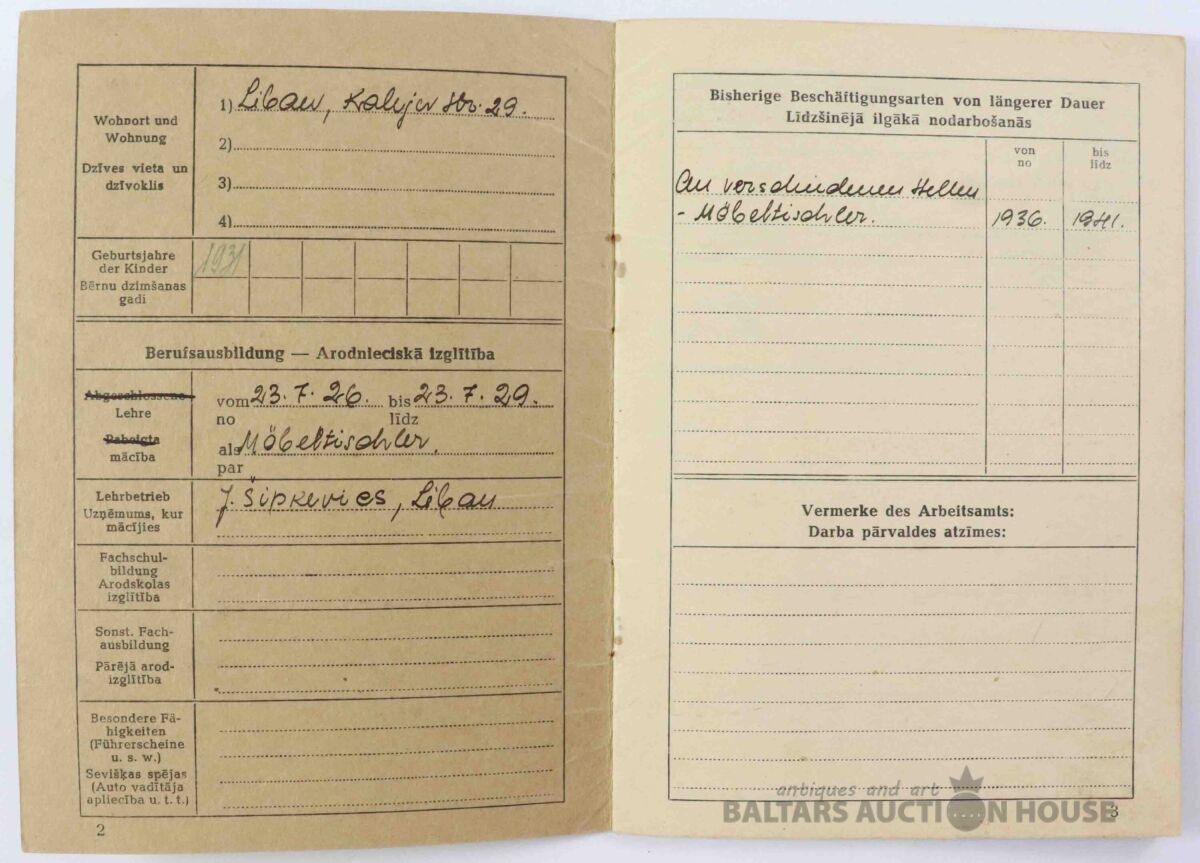 Wohnort und
Wohnung
Dzīves vieta un
dzīvoklis
1) Libau, Kalejer Str. 29.
2)
3)
4)
Geburtsjahre
der Kinder
Bērnu dzimšanas
gadi
1931
Berufsausbildung — Arodnieciskā izglītība
Abgeschlossene
Lehre
Pabeigta
mācība
vom 23. 7. 26. bis 23. 7. 29.
no līdz
als Möbeltischler.
par
Lehrbetrieb
Uzņēmums, kur
mācījies
J. Šipkevics, Libau
Fachschul-
bildung
Arodskolas
izglītība
Sonst. Fach-
ausbildung
Pārējā arod-
izglītība
Besondere Fä-
higkeiten
(Führerscheine
u. s. w.)
Sevišķas spējas
(Auto vadītāja
apliecība u. t. t.)
2
Bisherige Beschäftigungsarten von längerer Dauer
Līdzšinējā ilgākā nodarbošanās
von bis
no līdz
An verschiedenen Stellen
- Möbeltischler. 1936. 1941.
Vermerke des Arbeitsamts:
Darba pārvaldes atzīmes:
3
antiques and art
BALTARS AUCTION HOUSE